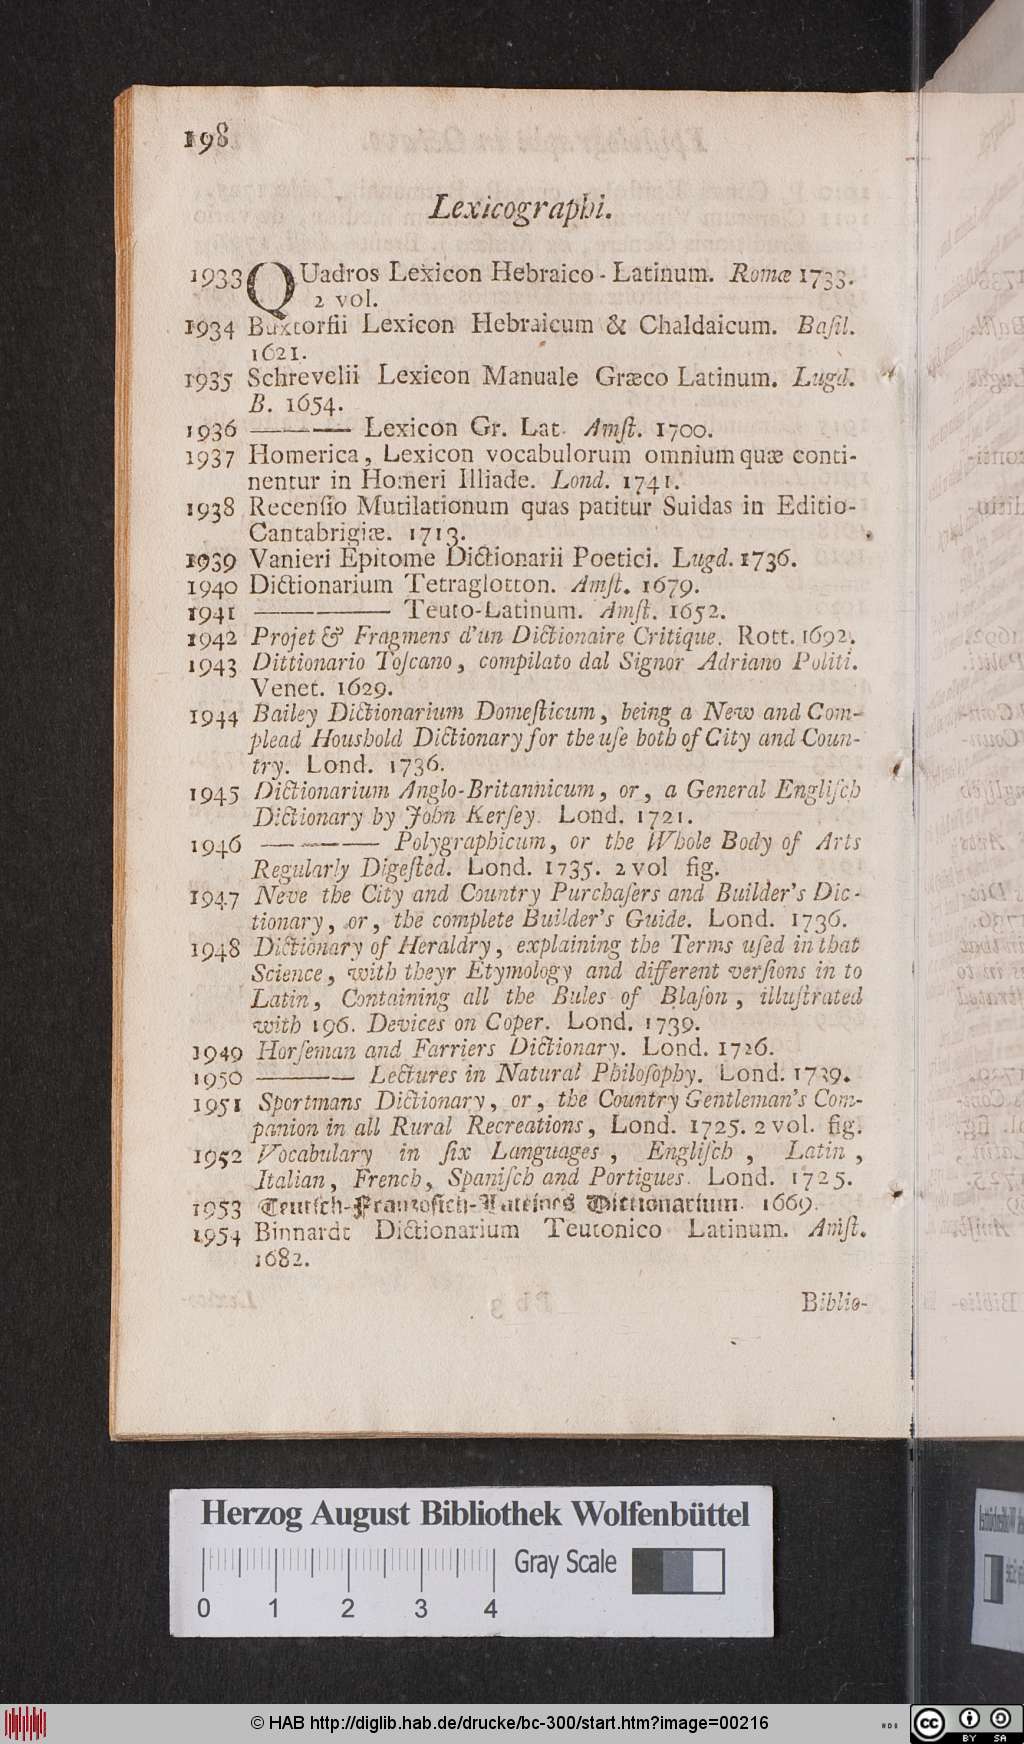 198
Lexicographi.
1933 QUadros Lexicon Hebraico-Latinum. Romæ 1733.
2 vol.
1934 Buxtorfii Lexicon Hebraicum & Chaldaicum. Baſil.
1621.
1935 Schrevelii Lexicon Manuale Græco Latinum. Lugd.
B. 1654.
1936 ——— Lexicon Gr. Lat. Amſt. 1700.
1937 Homerica, Lexicon vocabulorum omnium quæ conti-
nentur in Homeri Illiade. Lond. 1741.
1938 Recenſio Mutilationum quas patitur Suidas in Editio-
Cantabrigiæ. 1713.
1939 Vanieri Epitome Dictionarii Poetici. Lugd. 1736.
1940 Dictionarium Tetraglotton. Amſt. 1679.
1941 ———— Teuto-Latinum. Amſt. 1652.
1942 Projet & Fragmens d'un Dictionaire Critique. Rott. 1692.
1943 Dittionario Toſcano, compilato dal Signor Adriano Politi.
Venet. 1629.
1944 Bailey Dictionarium Domeſticum, being a New and Com-
plead Houshold Dictionary for the uſe both of City and Coun-
try. Lond. 1736.
1945 Dictionarium Anglo-Britannicum, or, a General Engliſch
Dictionary by John Kerſey. Lond. 1721.
1946 ———— Polygraphicum, or the Whole Body of Arts
Regularly Digeſted. Lond. 1735. 2 vol fig.
1947 Neve the City and Country Purchaſers and Builder's Dic-
tionary, or, the complete Builder's Guide. Lond. 1736.
1948 Dictionary of Heraldry, explaining the Terms uſed in that
Science, with theyr Etymology and different verſions in to
Latin, Containing all the Bules of Blaſon, illuſtrated
with 196. Devices on Coper. Lond. 1739.
1949 Horſeman and Farriers Dictionary. Lond. 1726.
1950 ——— Lectures in Natural Philoſophy. Lond. 1739.
1951 Sportmans Dictionary, or, the Country Gentleman's Com-
panion in all Rural Recreations, Lond. 1725. 2 vol. fig.
1952 Vocabulary in ſix Languages, Engliſch, Latin,
Italian, French, Spaniſch and Portigues. Lond. 1725.
1953 Teutſch-Franzoſich-Lateines Dictionarium. 1669.
1954 Binnardt Dictionarium Teutonico Latinum. Amſt.
1682.
Biblio-
Herzog August Bibliothek Wolfenbüttel
Gray Scale
0 1 2 3 4
© HAB http://diglib.hab.de/drucke/bc-300/start.htm?image=00216
cc BY SA